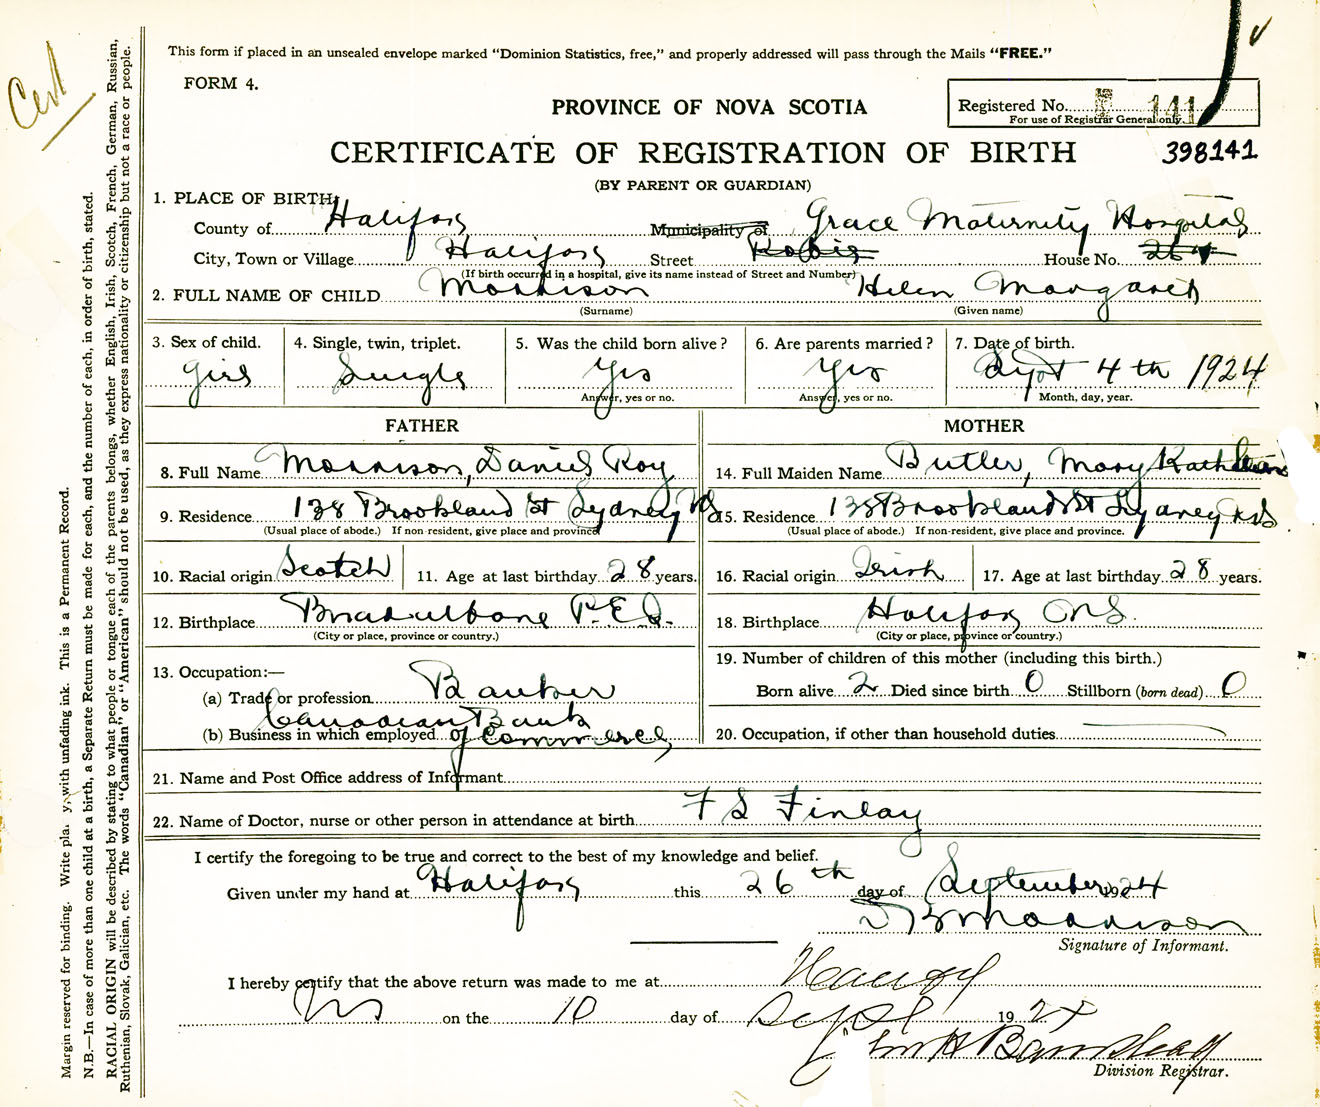 Cert
This form if placed in an unsealed envelope marked "Dominion Statistics, free," and properly addressed will pass through the Mails "FREE."
FORM 4.
PROVINCE OF NOVA SCOTIA
Registered No. 141
For use of Registrar General only.
CERTIFICATE OF REGISTRATION OF BIRTH
398141
(BY PARENT OR GUARDIAN)
1. PLACE OF BIRTH,
County of Halifax Municipality of Grace Maternity Hospital
City, Town or Village Halifax Street Robie House No. 264
(If birth occurred in a hospital, give its name instead of Street and Number)
2. FULL NAME OF CHILD Morrison Helen Margaret
(Surname) (Given name)
3. Sex of child. 4. Single, twin, triplet. 5. Was the child born alive? 6. Are parents married? 7. Date of birth.
Girl Single Yes Yes Sept 4th 1924
Answer, yes or no. Answer, yes or no. Month, day, year.
FATHER MOTHER
8. Full Name Morrison, Daniel Roy 14. Full Maiden Name Butler, Mary Kathleen
9. Residence 138 Brookland St Sydney NS 15. Residence 138 Brookland St Sydney NS
(Usual place of abode.) If non-resident, give place and province (Usual place of abode.) If non-resident, give place and province.
10. Racial origin Scotch 11. Age at last birthday 28 years. 16. Racial origin Irish 17. Age at last birthday 28 years.
12. Birthplace Bradalbane P.E.I. 18. Birthplace Halifax NS.
(City or place, province or country.) (City or place, province or country.)
13. Occupation:— 19. Number of children of this mother (including this birth.)
(a) Trade or profession Banker Born alive 2 Died since birth 0 Stillborn (born dead) 0
Canadian Bank
(b) Business in which employed of Commerce 20. Occupation, if other than household duties
21. Name and Post Office address of Informant
22. Name of Doctor, nurse or other person in attendance at birth F S Finlay
I certify the foregoing to be true and correct to the best of my knowledge and belief.
Given under my hand at Halifax this 26th day of September 1924
D R Morrison
Signature of Informant.
I hereby certify that the above return was made to me at Halifax
NS on the 10 day of Sept 1924
John H Barnstead
Division Registrar.
Margin reserved for binding. Write plainly, with unfading ink. This is a Permanent Record.
N.B.—In case of more than one child at a birth, a Separate Return must be made for each, and the number of each, in order of birth, stated.
RACIAL ORIGIN will be described by stating to what people or tongue each of the parents belongs, whether English, Irish, Scotch, French, German, Russian,
Ruthenian, Slovak, Galician, etc. The words "Canadian" or "American" should not be used, as they express nationality or citizenship but not a race or people.